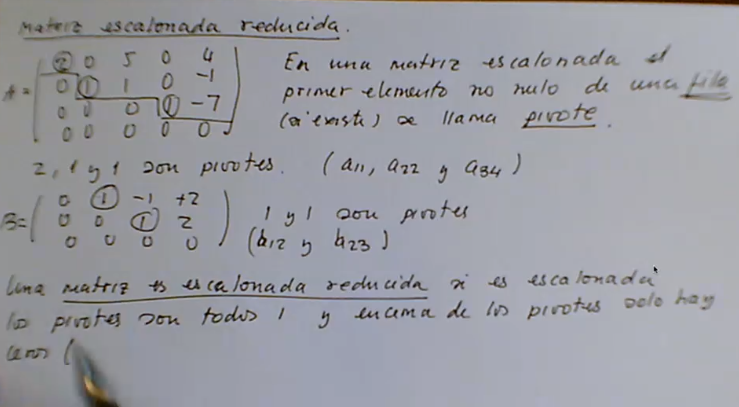 Matriz escalonada reducida.
A = ( 2 0 5 0 4
0 1 1 0 -1
0 0 0 1 -7
0 0 0 0 0 )
En una matriz escalonada el
primer elemento no nulo de una fila
(si existe) se llama pivote.
2, 1 y 1 son pivotes. (a11, a22 y a34)
B = ( 0 1 -1 +2
0 0 1 2
0 0 0 0 )
1 y 1 son pivotes
(b12 y b23)
Una matriz es escalonada reducida si es escalonada
los pivotes son todos 1 y encima de los pivotes solo hay
ceros (